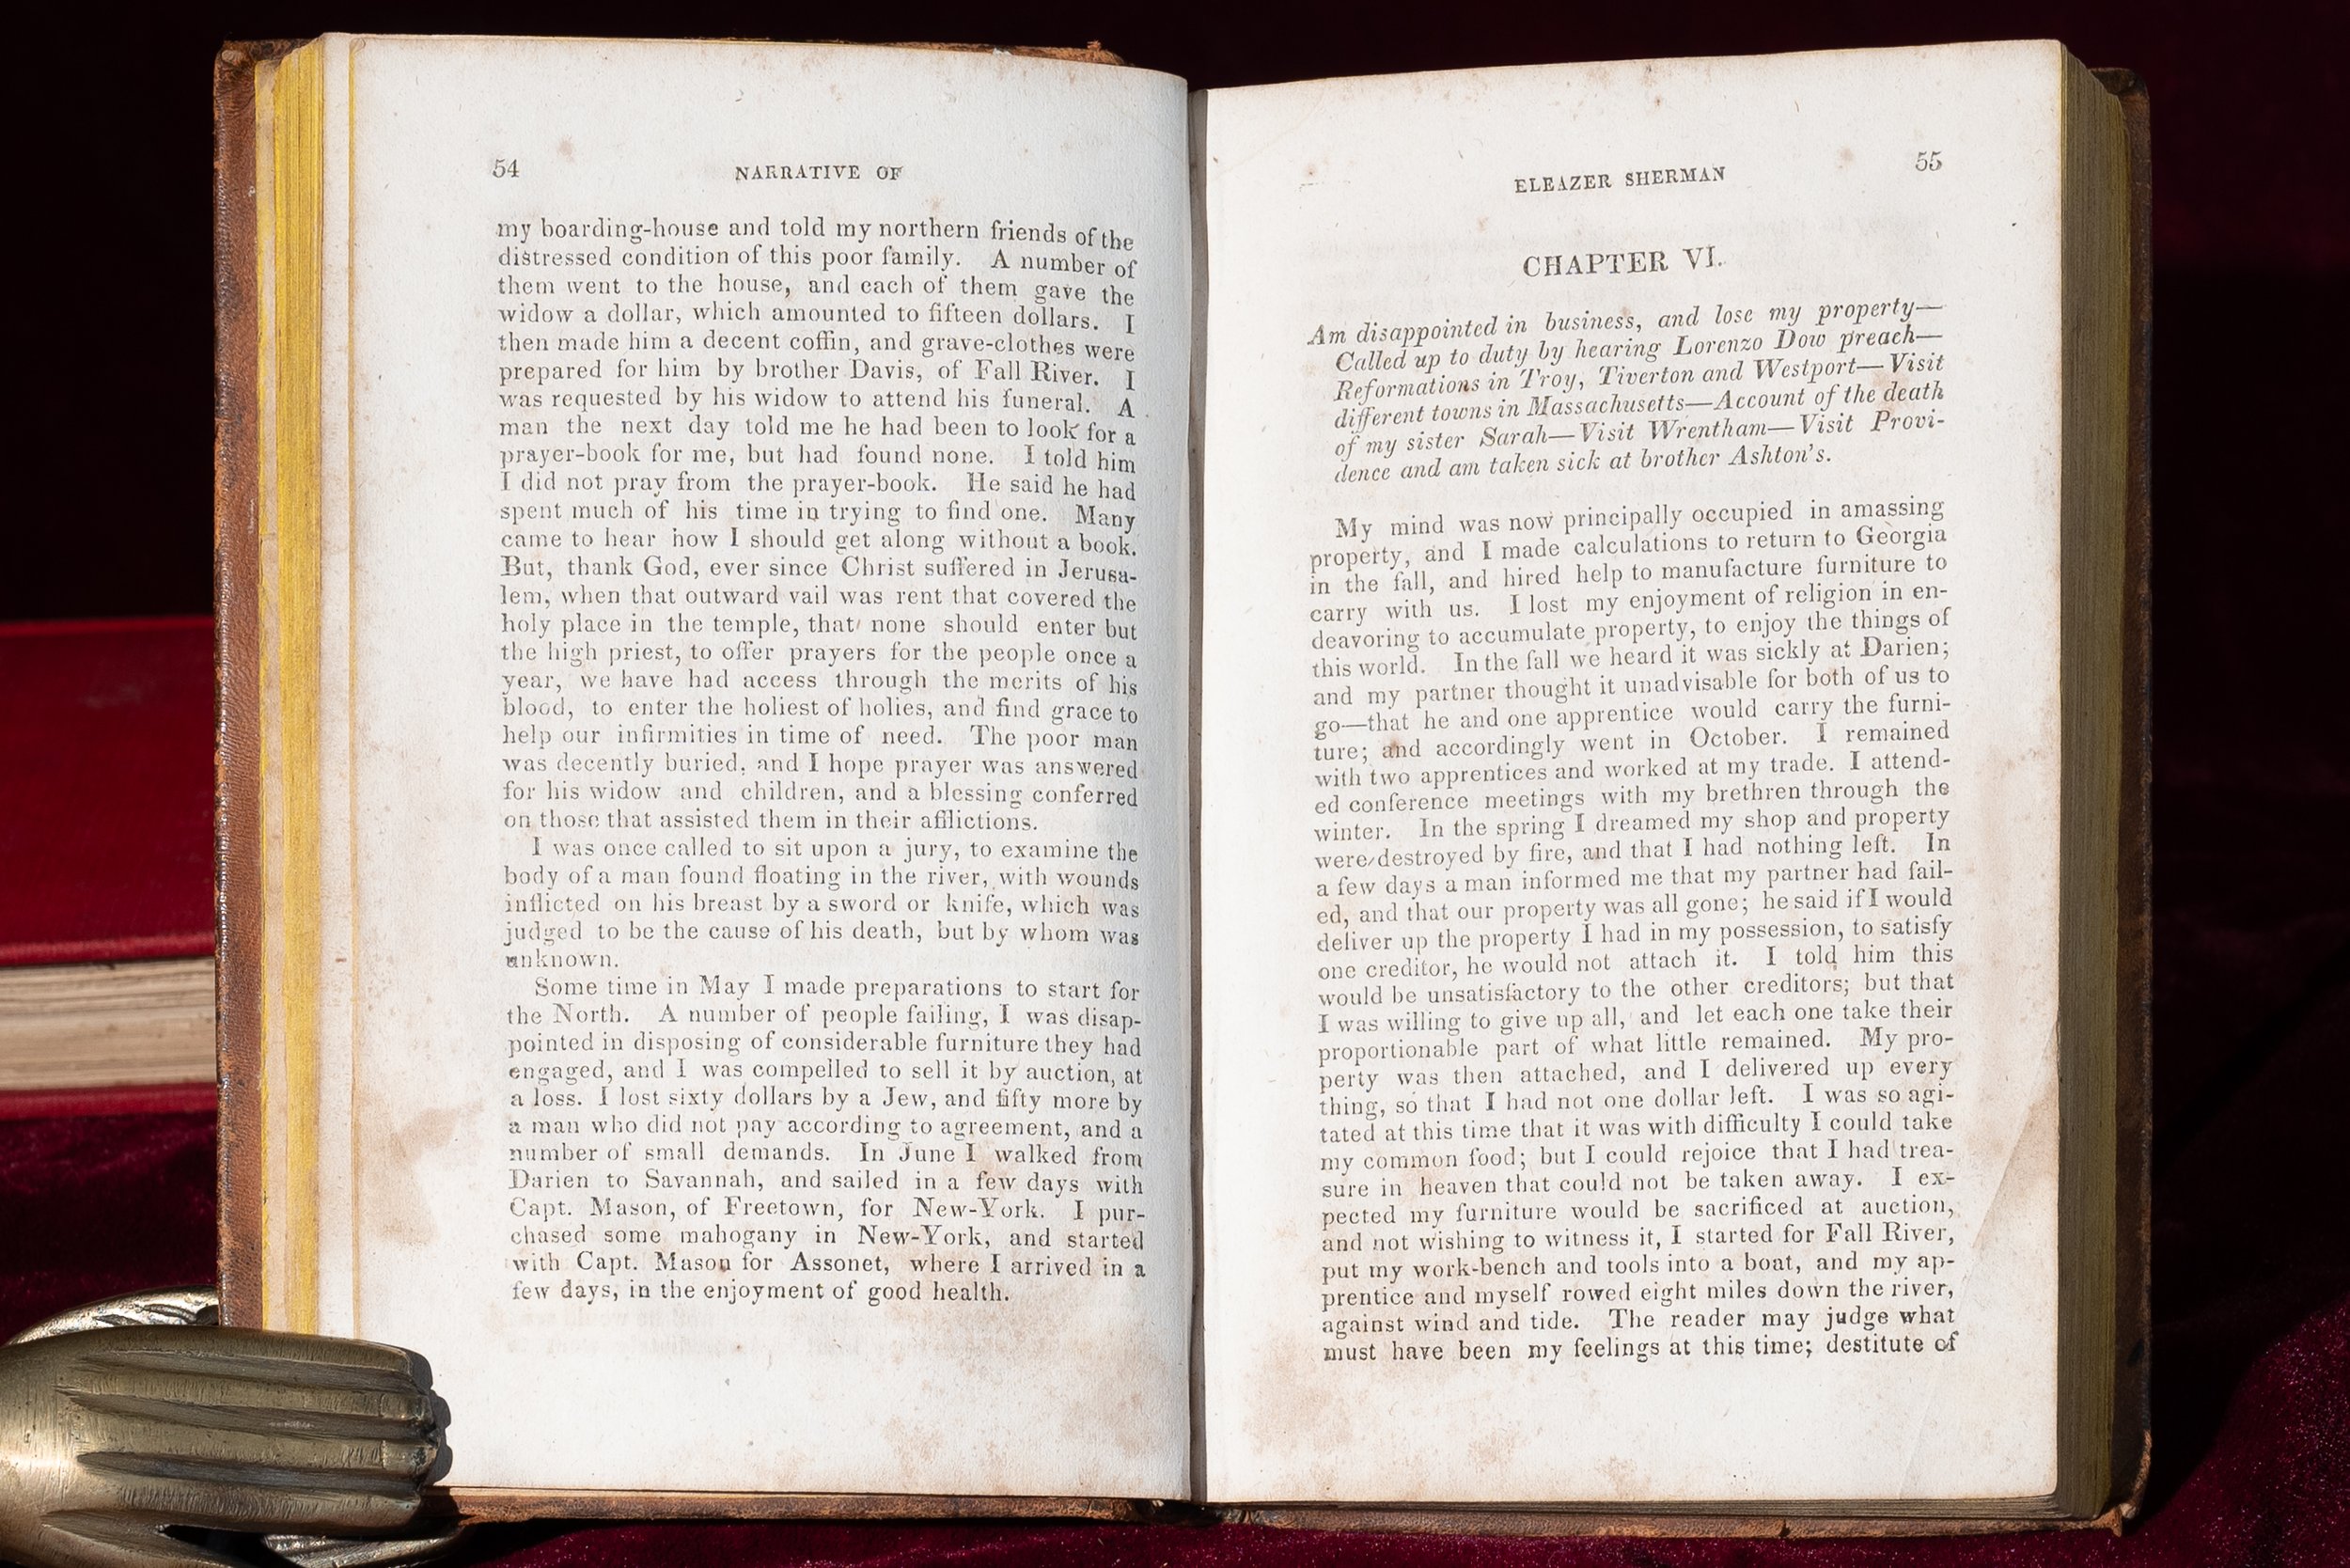 54
NARRATIVE OF
my boarding-house and told my northern friends of the
distressed condition of this poor family. A number of
them went to the house, and each of them gave the
widow a dollar, which amounted to fifteen dollars. I
then made him a decent coffin, and grave-clothes were
prepared for him by brother Davis, of Fall River. I
was requested by his widow to attend his funeral. A
man the next day told me he had been to look for a
prayer-book for me, but had found none. I told him
I did not pray from the prayer-book. He said he had
spent much of his time in trying to find one. Many
came to hear how I should get along without a book.
But, thank God, ever since Christ suffered in Jerusa-
lem, when that outward vail was rent that covered the
holy place in the temple, that none should enter but
the high priest, to offer prayers for the people once a
year, we have had access through the merits of his
blood, to enter the holiest of holies, and find grace to
help our infirmities in time of need. The poor man
was decently buried, and I hope prayer was answered
for his widow and children, and a blessing conferred
on those that assisted them in their afflictions.
I was once called to sit upon a jury, to examine the
body of a man found floating in the river, with wounds
inflicted on his breast by a sword or knife, which was
judged to be the cause of his death, but by whom was
unknown.
Some time in May I made preparations to start for
the North. A number of people failing, I was disap-
pointed in disposing of considerable furniture they had
engaged, and I was compelled to sell it by auction, at
a loss. I lost sixty dollars by a Jew, and fifty more by
a man who did not pay according to agreement, and a
number of small demands. In June I walked from
Darien to Savannah, and sailed in a few days with
Capt. Mason, of Freetown, for New-York. I pur-
chased some mahogany in New-York, and started
with Capt. Mason for Assonet, where I arrived in a
few days, in the enjoyment of good health.
ELEAZER SHERMAN
55
CHAPTER VI.
Am disappointed in business, and lose my property—
Called up to duty by hearing Lorenzo Dow preach—
Reformations in Troy, Tiverton and Westport—Visit
different towns in Massachusetts—Account of the death
of my sister Sarah—Visit Wrentham—Visit Provi-
dence and am taken sick at brother Ashton's.
My mind was now principally occupied in amassing
property, and I made calculations to return to Georgia
in the fall, and hired help to manufacture furniture to
carry with us. I lost my enjoyment of religion in en-
deavoring to accumulate property, to enjoy the things of
this world. In the fall we heard it was sickly at Darien;
and my partner thought it unadvisable for both of us to
go—that he and one apprentice would carry the furni-
ture; and accordingly went in October. I remained
with two apprentices and worked at my trade. I attend-
ed conference meetings with my brethren through the
winter. In the spring I dreamed my shop and property
were destroyed by fire, and that I had nothing left. In
a few days a man informed me that my partner had fail-
ed, and that our property was all gone; he said if I would
deliver up the property I had in my possession, to satisfy
one creditor, he would not attach it. I told him this
would be unsatisfactory to the other creditors; but that
I was willing to give up all, and let each one take their
proportionable part of what little remained. My pro-
perty was then attached, and I delivered up every
thing, so that I had not one dollar left. I was so agi-
tated at this time that it was with difficulty I could take
my common food; but I could rejoice that I had trea-
sure in heaven that could not be taken away. I ex-
pected my furniture would be sacrificed at auction,
and not wishing to witness it, I started for Fall River,
put my work-bench and tools into a boat, and my ap-
prentice and myself rowed eight miles down the river,
against wind and tide. The reader may judge what
must have been my feelings at this time; destitute of